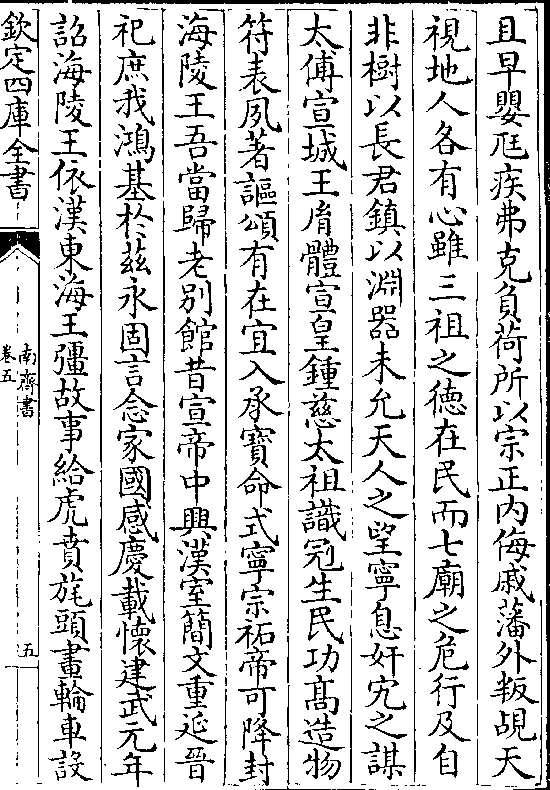 且早嬰尫疾弗克負荷所以宗正内侮戚藩外叛覘天
視地人各有心雖三祖之徳在民而七廟之危行及自
非樹以長君鎮以淵器未允天人之望寧息奸宄之謀
太傅宣城王胄體宣皇鍾慈太祖識冠生民功髙造物
符表夙著謳頌有在宜入承寶命式寧宗祏帝可降封
海陵王吾當歸老别館昔宣帝中興漢室簡文重延晉
祀庶我鴻基於兹永固言念家國感慶載懷建武元年
詔海陵王依漢東海王彊故事給虎賁旄頭畫輪車設
欽定四庫全書
南齊書
卷五
五